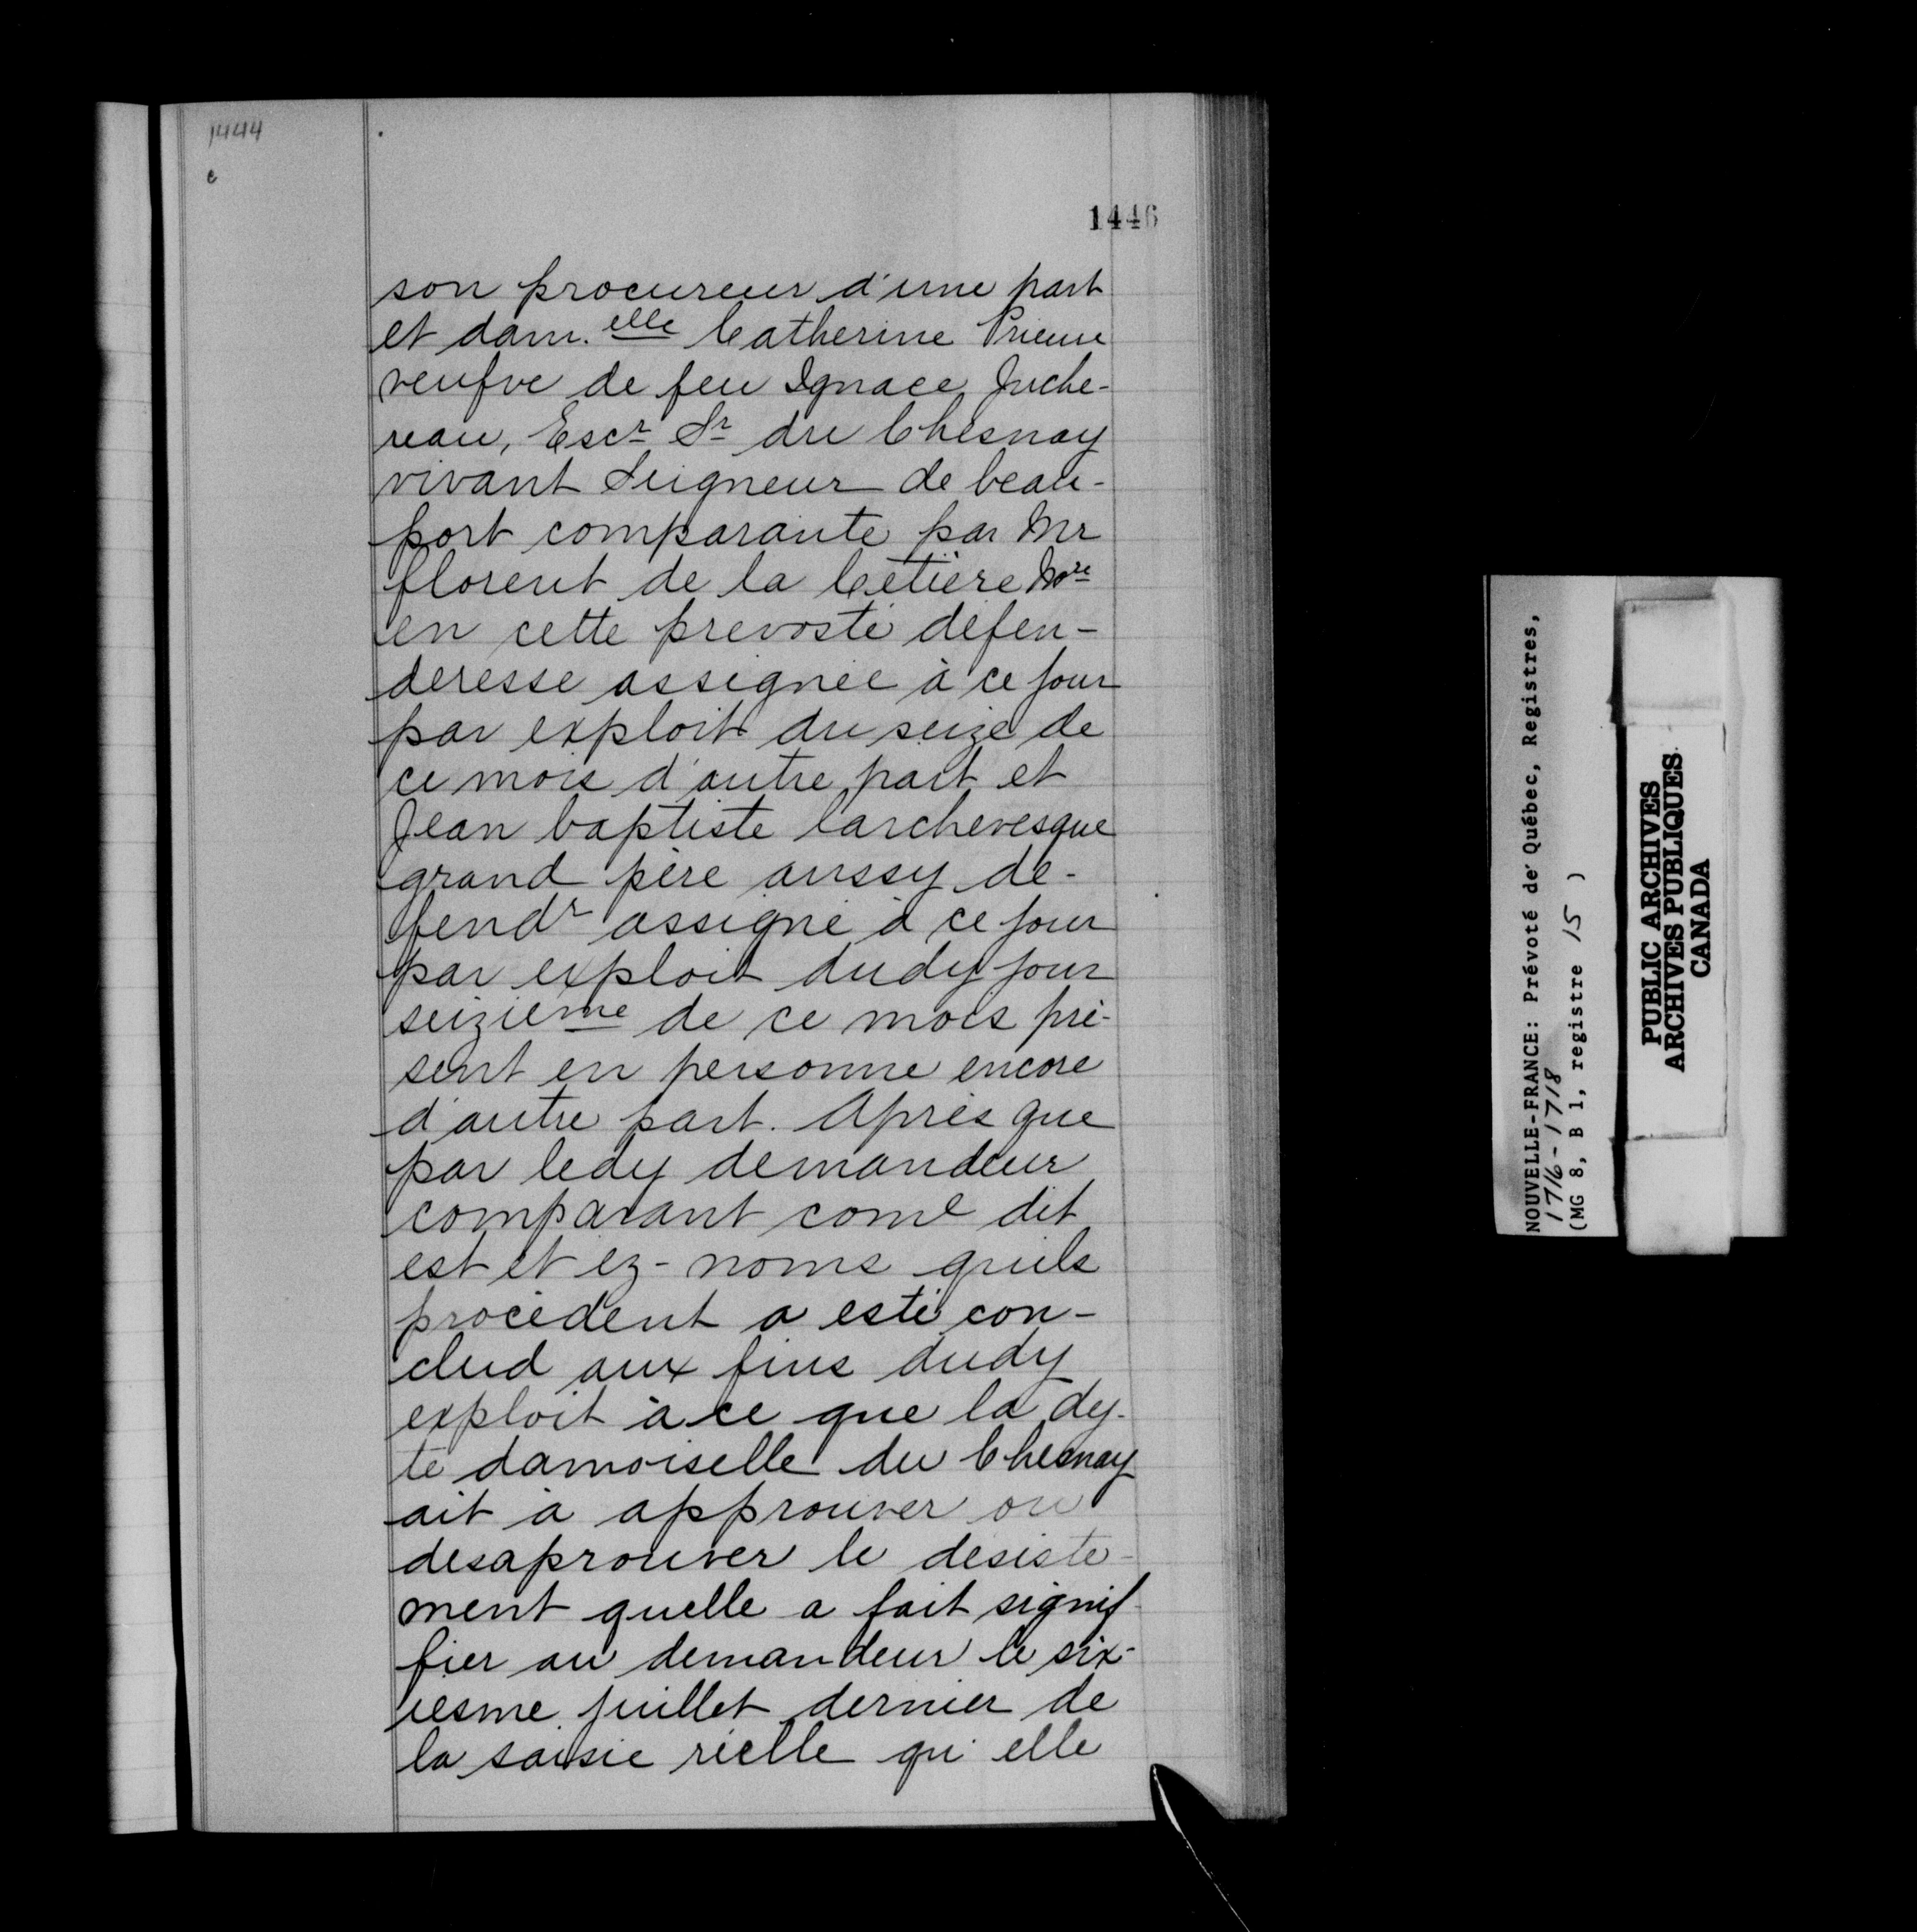 1444
c
1446
son procureur d'une part
et dam.elle Catherine Prieur
veufve de feu Ignace Juche-
reau, Escr Sr du Chesnay
vivant Seigneur de beau-
port comparante par Mr
florent de la Cetière Nore
en cette prevosté défen-
deresse assignée à ce jour
par exploit du seize de
ce mois d'autre part et
Jean baptiste larchevesque
grand père aussy dé-
fendr assigné à ce jour
par exploit dudy jour
seizième de ce mois pré-
sent en personne encore
d'autre part. Après que
par ledy demandeur
comparant come dit
est et ez-noms quils
procèdent a esté con-
clud aux fins dudy
exploit à ce que la dy-
te damoiselle du Chesnay
ait à approuver ou
desaprouver le désiste-
ment quelle a fait signif-
fier au demandeur le six-
iesme juillet dernier de
la saisie réelle qu'elle
NOUVELLE-FRANCE: Prévoté de Québec, Registres,
1716-1718
(MG 8, B 1, registre 15 )
PUBLIC ARCHIVES
ARCHIVES PUBLIQUES
CANADA